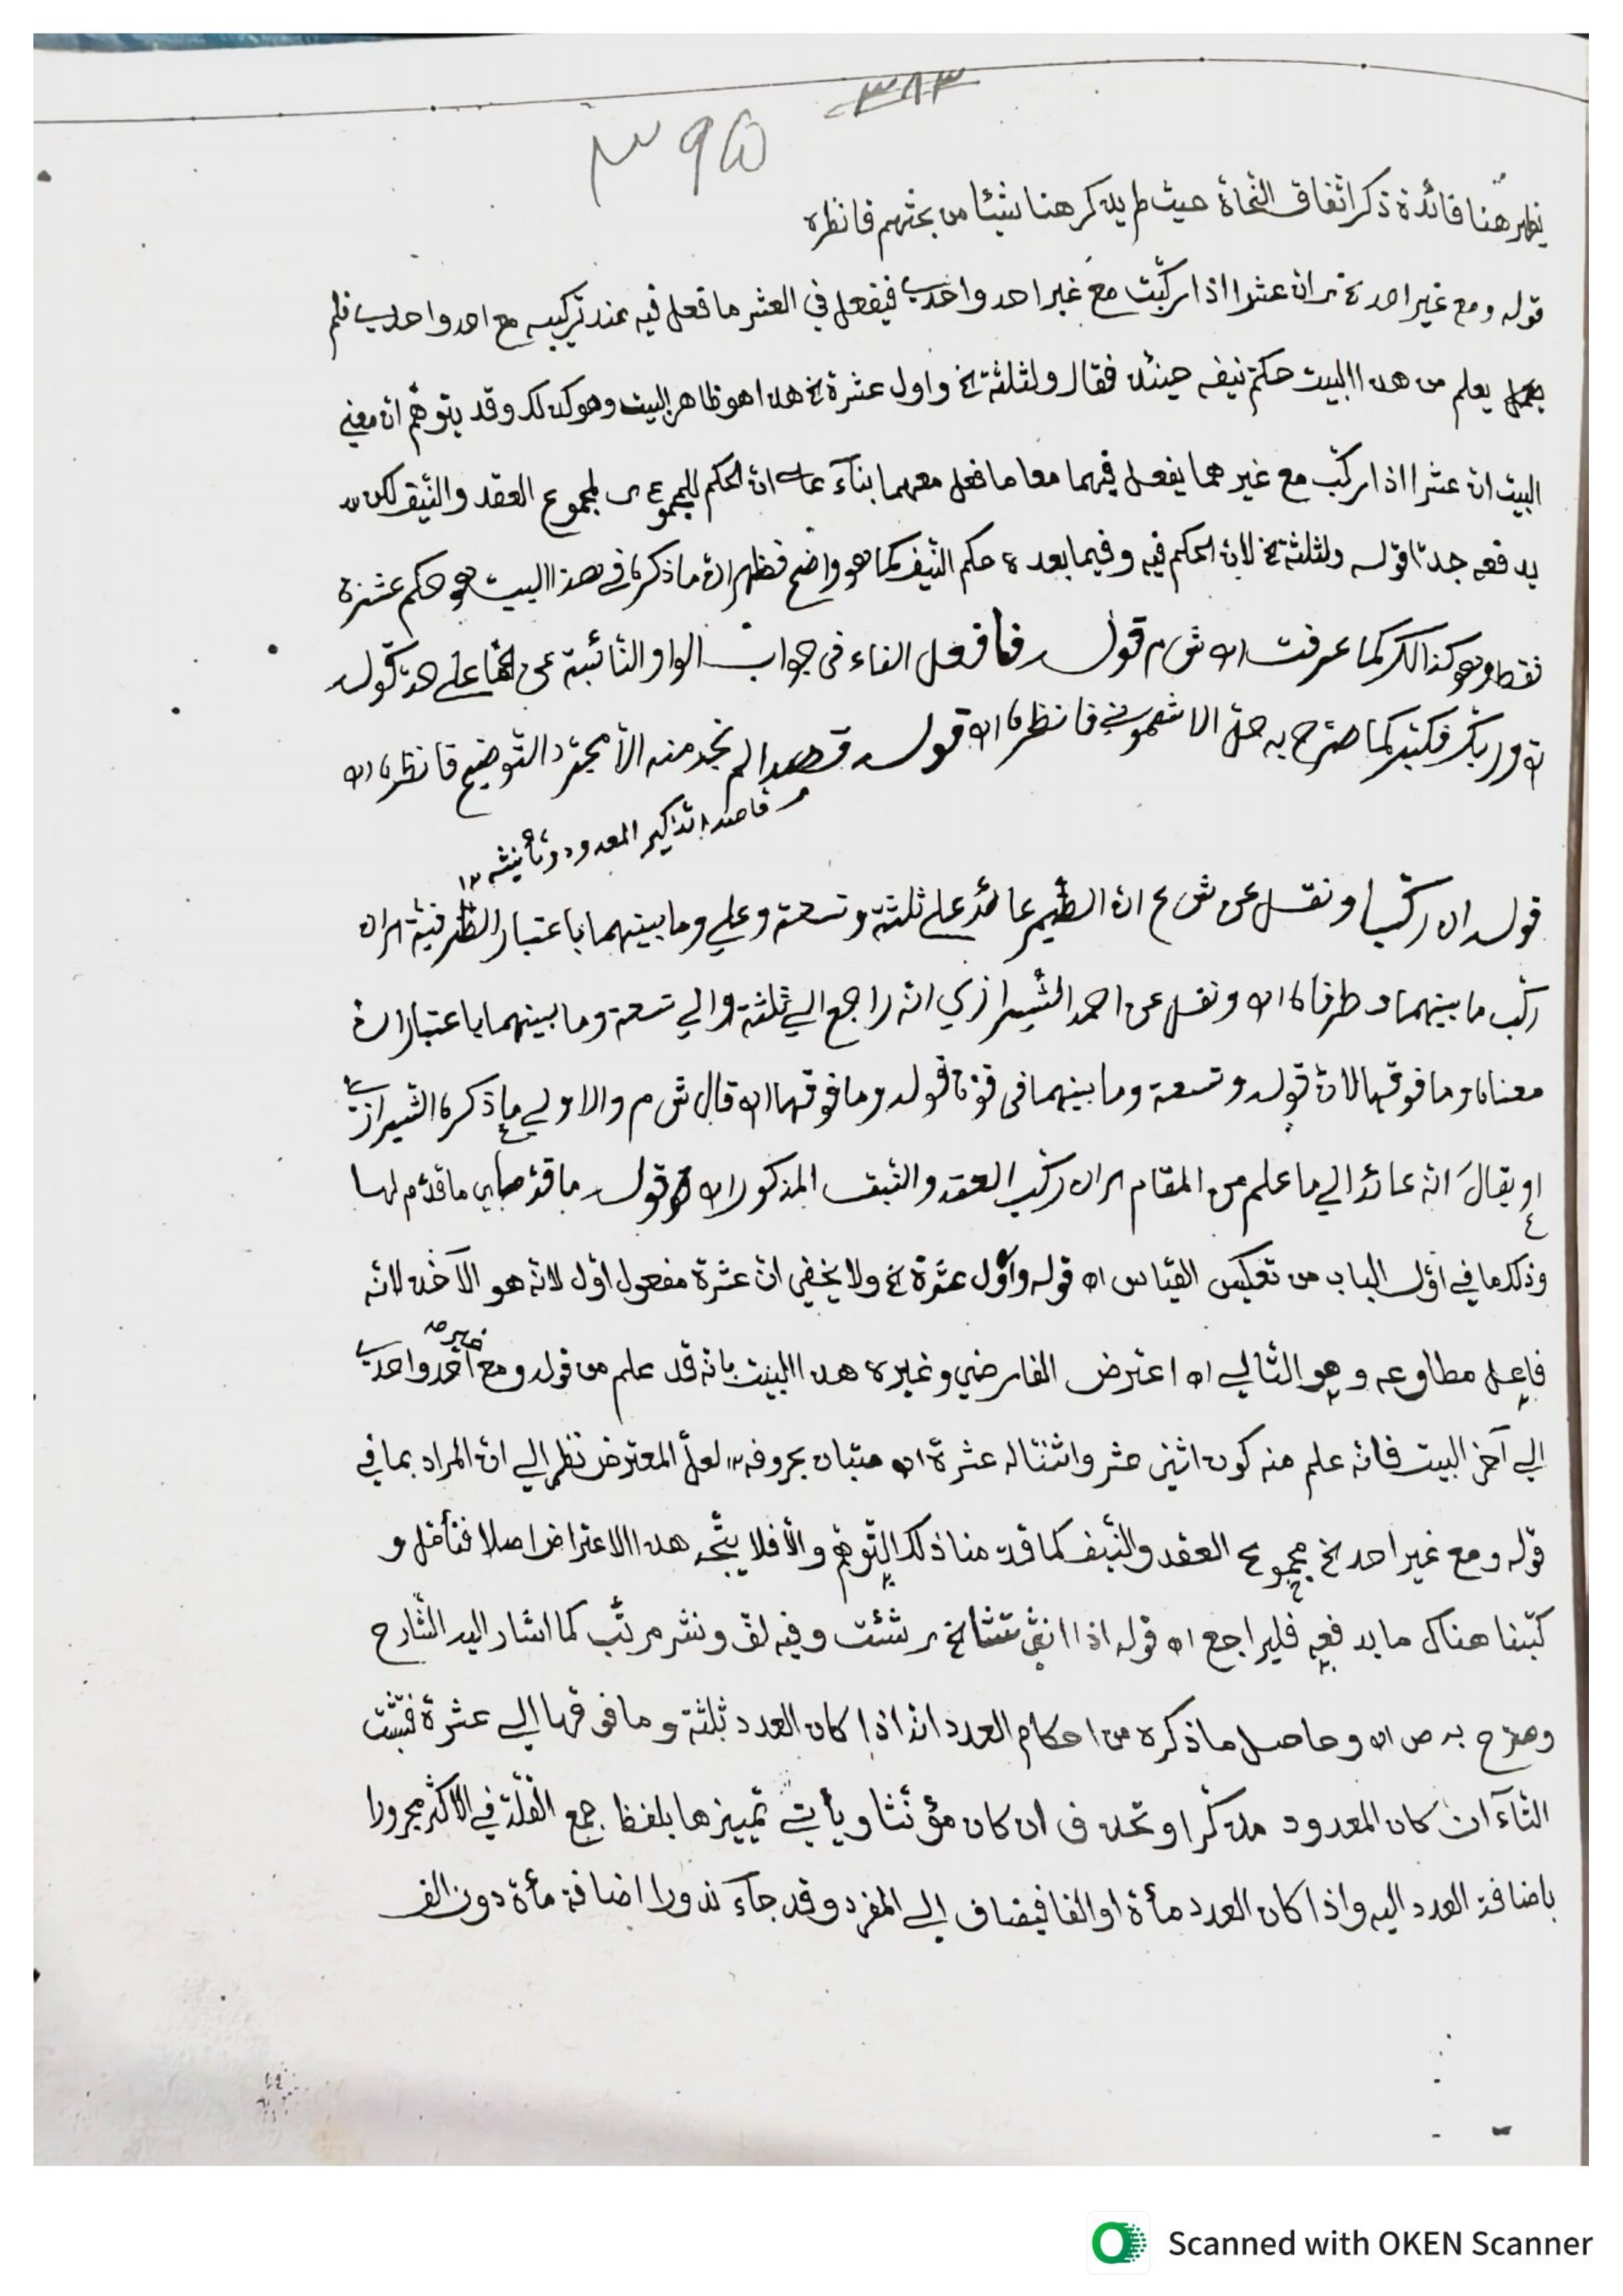 ٣٨٣
٣٩٥
يظهر هنا فائدة ذكر اتفاق النحاة حيث لم يذكر هنا شيئا من بحثهم فانظره
قوله ومع غير احد خ ان عشرا اذا ركبت مع غير احد واحدى فيفعل في العشر ما فعل فيه عند تركيبه مع احد واحدى فلم
يعلم من هذا البيت حكم نيفه حينئذ فقال ولثلثة خ واول عشرة خ هذا هو ظاهر البيت وهو كذلك وقد يتوهم ان معنى
البيت ان عشرا اذا ركب مع غير هما يفعل فيهما معا ما فعل معهما بناء على ان الحكم للمجموع لمجموع العقد والنيف لكن
يدفعه جدا قوله ولثلثة خ لان الحكم فيه وفيما بعده حكم النيف كما هو واضح فظهر ان ما ذكره في هذا البيت هو حكم عشرة
فقط وهو كذالك كما عرفت اه ش م قوله فما فعل الفاء في جواب الواو النائبة عن اما على حد قوله
وربك فكبر كما صرح به حق الاشموني فانظره اه قوله قصدا لم نجد منه الا مجرد التوضيح فانظره اه
قاصدا تذكير المعدود وتأنيثه ١٢
قوله ان ركبا ونقل عن ش ع ان الضمير عائد على ثلثة وتسعة وعلى وما بينهما باعتبار الظرفية ان
ركب ما بينهما وطرفاه اه ونقل عن احمد الشيرازي انه راجع الى ثلثة والى تسعة وما بينهما باعتبار ان
معناه وما فوقها لان قوله وتسعة وما بينهما في قوة قوله وما فوقها اه قال ش م والاولى ما ذكره الشيرازي
او يقال انه عائد الى ما علم من المقام ان ركب العقد والنيف المذكور اه قوله ما قدما اي ما قدم لهما
وذلك ما في اول الباب من تعكيس القياس اه قوله واول عشرة خ ولا يخفى ان عشرة مفعول اول لانه هو الآخذ لانه
فاعل مطاوعه وهو التالي اه اعترض الفارضي وغيره هذا البيت بانه قد علم من قوله ومع غير احد واحدى
الى آخر البيت فانه علم منه كون اثنى عشر واثنتا عشرة اه بحروفه ١٢ لعل المعترض نظر الى ان المراد بما في
قوله ومع غير احد خ مجموع العقد والنيف كما قدمنا ذلك التوهم والا فلا يتجه هذا الاعتراض اصلا فتأمل و
كتبنا هناك ما يدفعه فليراجع اه قوله اذا انثى تشا خ شئت وفيه لف ونشر مرتب كما اشار اليه الشارح
وصرح به ص اه وحاصل ما ذكره من احكام العدد انه اذا كان العدد ثلثة وما فوقها الى عشرة فتثبت
التاء ان كان المعدود مذكرا وتحذف ان كان مؤنثا ويأتى تمييزها بلفظ جمع القلة في الاكثر مجرورا
باضافة العدد اليه واذا كان العدد مأة او الفا فيضاف الى المفرد وقد جاء ندورا اضافة مأة دون الف
Scanned with OKEN Scanner